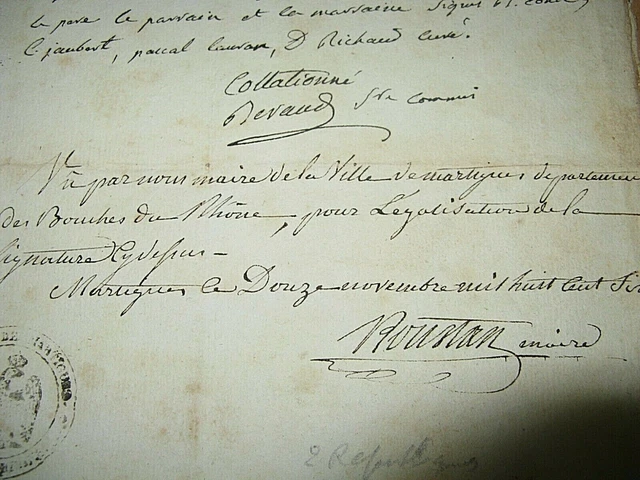 le pere le parrain et la marraine signés
C. jaubert, pascal lauran, D Richaud curé.
Collationné
Revaud Sre commis
Vu par nous maire de la Ville de martigues departemen
des Bouches du Rhône, pour Légalisation de la
Signature Cydessus —
Martigues le Douze novembre mil huit Cent Six
Roustan maire